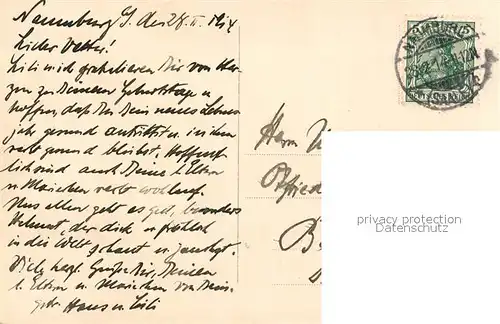 Naumburg S. den 28. II. 1914
Lieber Vetter!
Lili und ich gratulieren Dir von Her-
zen zu Deinem Geburtstage u.
hoffen, daß Du Dein neues Lebens
jahr gesund antrittst u. in ihm
recht gesund bleibst. Hoffent
lich sind auch Deine l. Eltern
u. Mariechen recht wohlauf.
Uns allen geht es gut, besonders
Helmut, der dick u. fröhlich
in die Welt schaut u. jauchzt.
Viele herzl. Grüße Dir, Deinen
l. Eltern u. Mariechen von Dein.
Hans u. Lili
NAUMBURG
(SAALE)
Herrn
B
privacy protection
Datenschutz